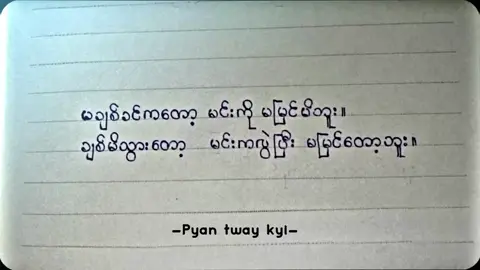 မချစ်ခင်ကတော့ မင်းကို မမြင်မိဘူး။
ချစ်မိသွားတော့ မင်းကလွဲပြီး မမြင်တော့ဘူး။
-Pyan tway kyi-